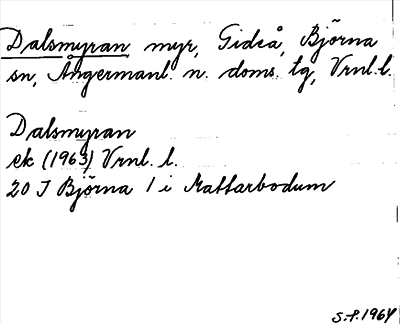 Dalsmyran myr, Gideå, Björna
sn, Ångermanl. n. doms. tg, Vrnl. l.
Dalsmyran
ek (1963) Vrnl. l.
20 J Björna 1 i Mattarbodum
S.P. 1964